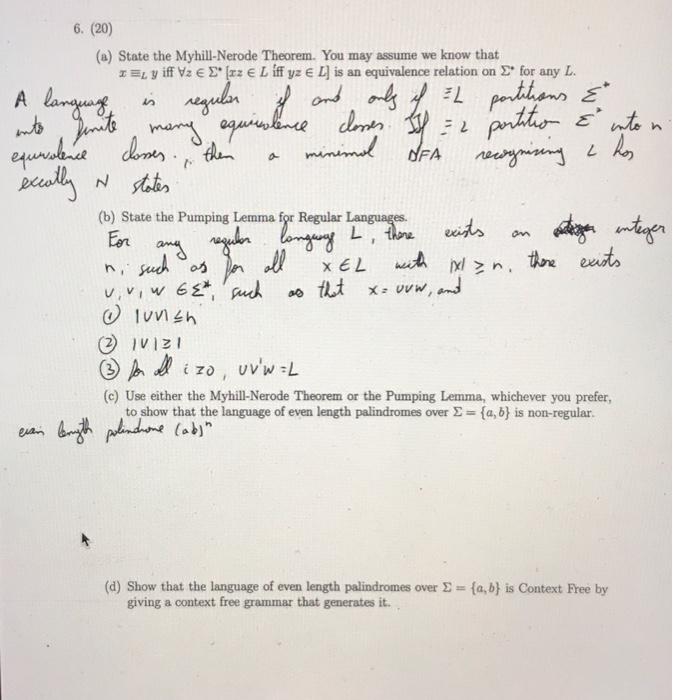 6. (20)
(a) State the Myhill-Nerode Theorem. You may assume we know that
x ≡L y iff ∀z ∈ Σ* [xz ∈ L iff yz ∈ L] is an equivalence relation on Σ* for any L.
A language is regular if and only if ≡L partitions Σ*
into finite many equivalence classes. If ≡L partition Σ* into n
equivalence classes, then a minimal DFA recognising L has
excatly N states
(b) State the Pumping Lemma for Regular Languages.
For any regular language L, there exists an integer
n, such as for all x ∈ L with |x| ≥ n, there exists
u, v, w ∈ Σ*, such as that x = uvw, and
① |uv| ≤ n
② |v| ≥ 1
③ for all i ≥ 0, uvⁱw = L
(c) Use either the Myhill-Nerode Theorem or the Pumping Lemma, whichever you prefer,
to show that the language of even length palindromes over Σ = {a, b} is non-regular.
even length palindrome (ab)ⁿ
(d) Show that the language of even length palindromes over Σ = {a, b} is Context Free by
giving a context free grammar that generates it.